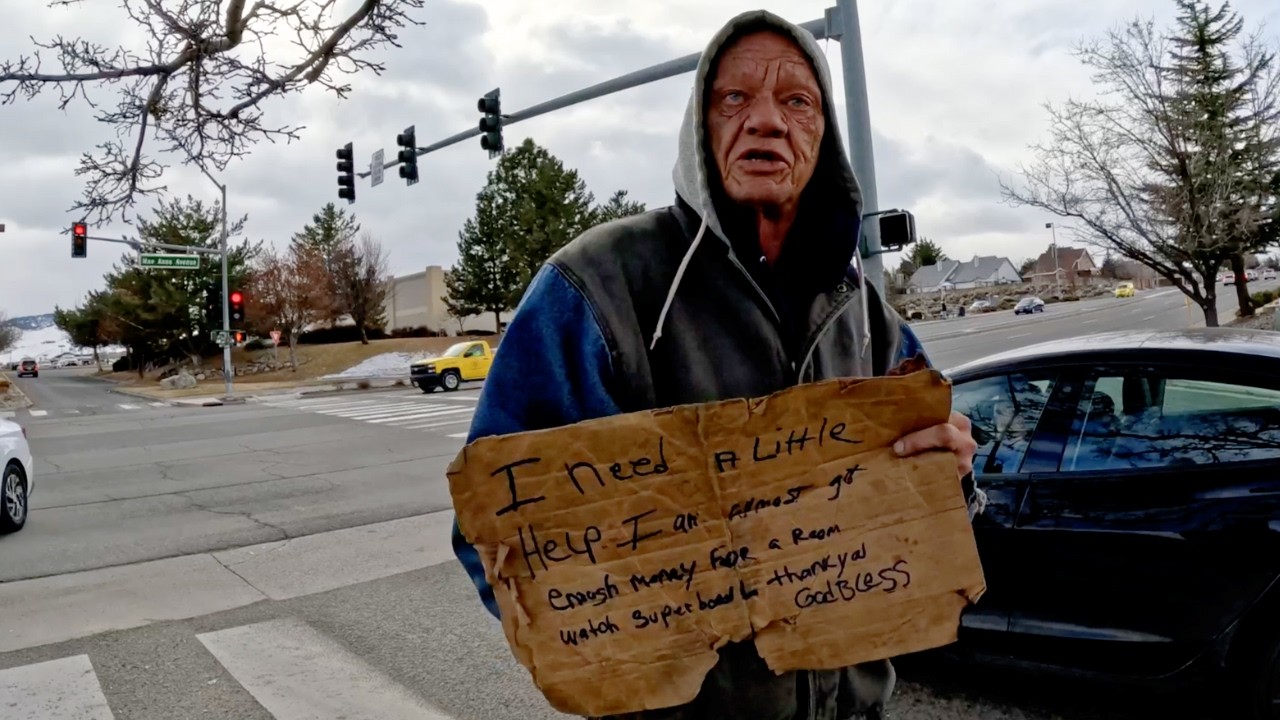 Mae Anne Avenue
I need A Little
Help I am almost got
enough money FOR a Room
watch Superbowl thankyal
God BLess